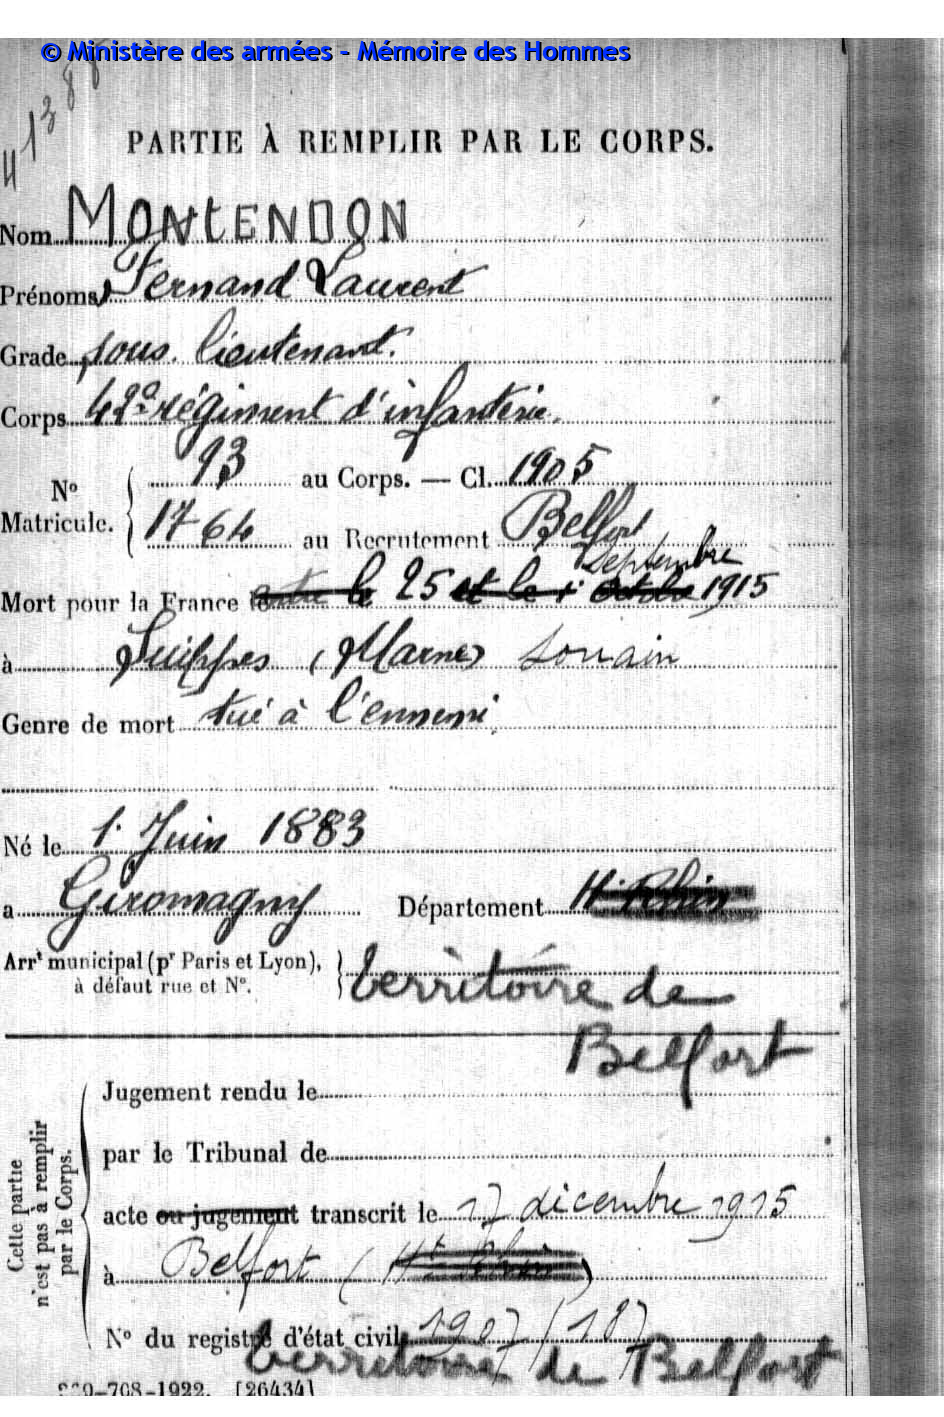 © Ministère des armées - Mémoire des Hommes
PARTIE À REMPLIR PAR LE CORPS.
Nom MONTENDON
Prénoms Fernand Laurent
Grade sous. lieutenant.
Corps 42e régiment d'infanterie.
No Matricule. 93 au Corps. — Cl. 1905
1764 au Recrutement Belfort
septembre
Mort pour la France le entre le 25 et le 1 octobre 1915
à Suippes (Marne) Souain
Genre de mort tué à l'ennemi
Né le 1. Juin 1883
a Giromagny Département Ht Rhin
Arrt municipal (pr Paris et Lyon),
à défaut rue et No.
territoire de
Belfort
Cette partie
n'est pas à remplir
par le Corps.
Jugement rendu le
par le Tribunal de
acte ou jugement transcrit le 17 décembre 1915
à Belfort (Ht Rhin)
No du registre d'état civil
territoire de Belfort
-708-1922. [26434]